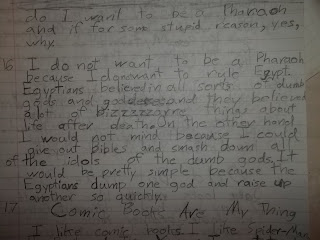 do I want to be a Pharaoh
and if for some stupid reason, yes,
why.
16. I do not want to be a Pharaoh
because I dont want to rule Egypt.
Egyptians believed in all sorts of dumb
gods and goddesses and they believed
a lot of bizzzzarre things about
life after death. On the other hand
I would not mind because I could
give out bibles and smash down all
of the idols of the dumb gods. It
would be pretty simple because the
Egyptians dump one god and raise up
another so quickly.
17. Comic Books Are My Thing
I like comic books. I like Spider-Man